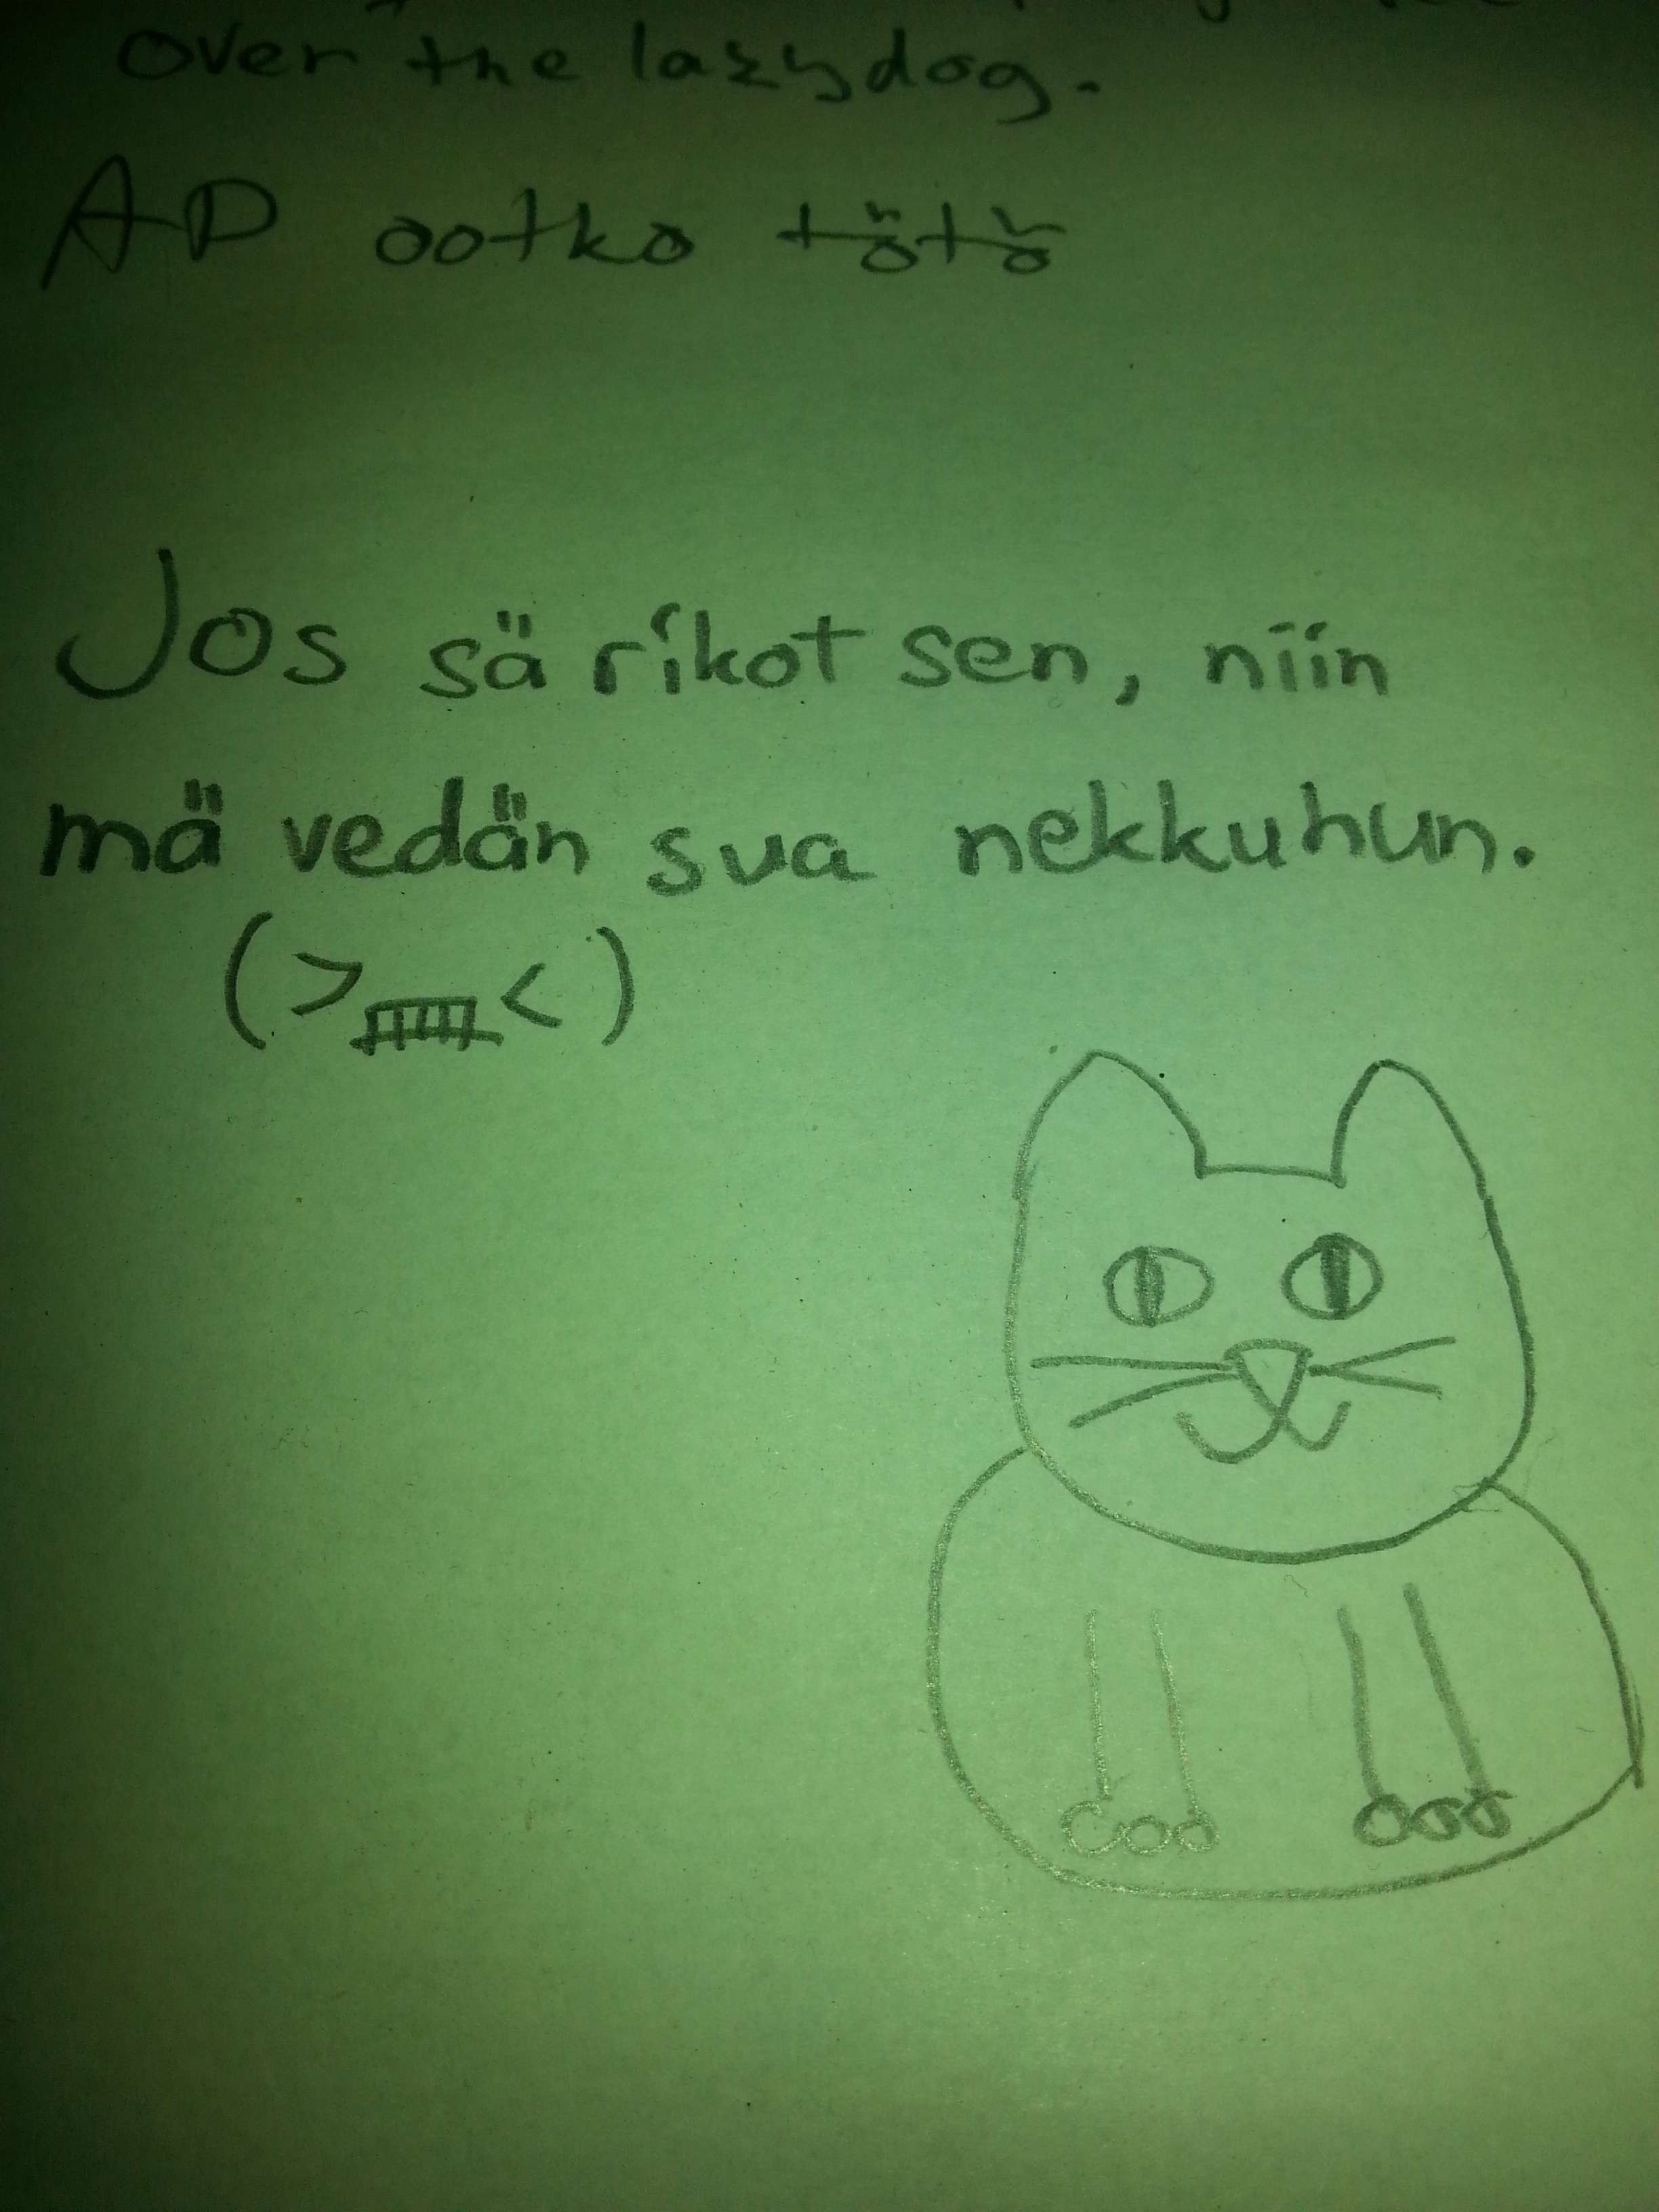 over the lazy dog.
AD ootko tötö
Jos sä rikot sen, niin
mä vedän sua nekkuhun.
(>㎜<)